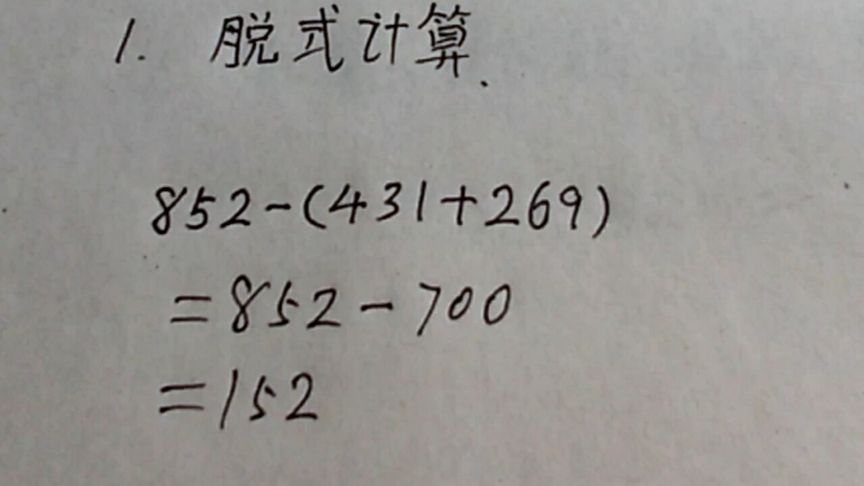 1. 脱式计算.
852-(431+269)
=852-700
=152